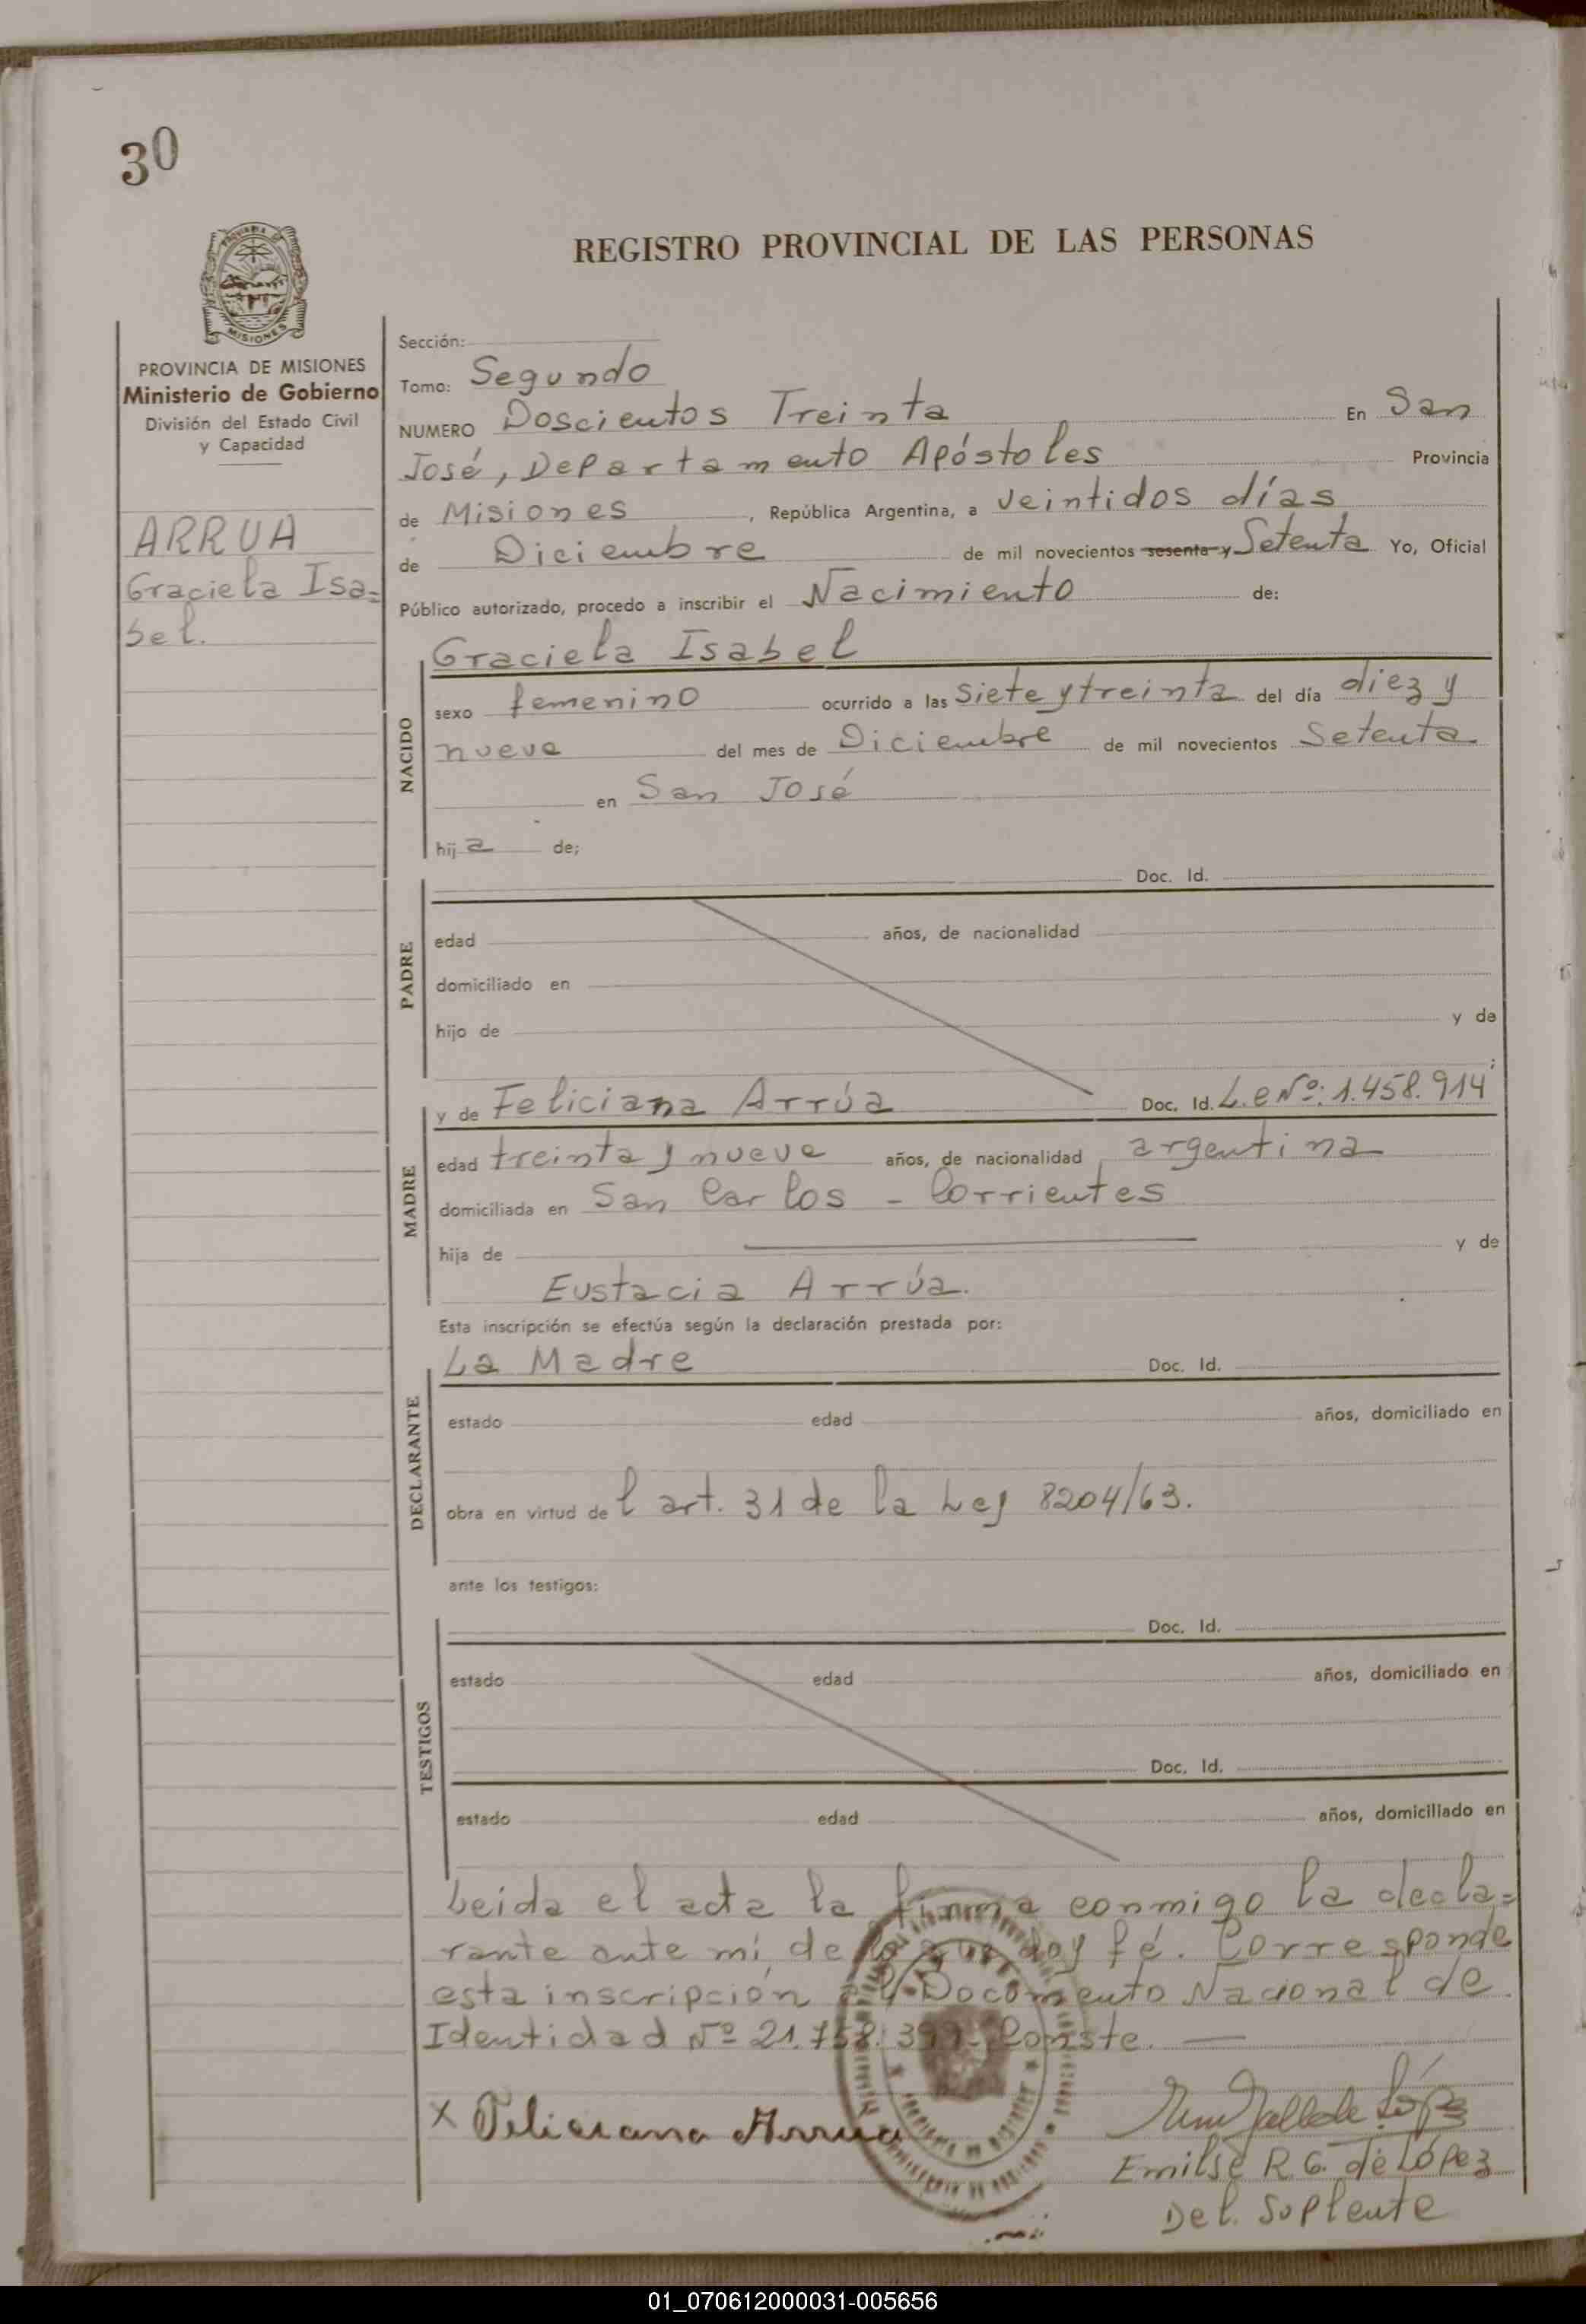 30
REGISTRO PROVINCIAL DE LAS PERSONAS
PROVINCIA DE MISIONES
Ministerio de Gobierno
División del Estado Civil
y Capacidad
ARRUA
Graciela Isa=
bel.
Sección:
Tomo: Segundo
NUMERO Doscientos Treinta En San
José, Departamento Apóstoles Provincia
de Misiones, República Argentina, a veintidos días
de Diciembre de mil novecientos sesenta y Setenta Yo, Oficial
Público autorizado, procedo a inscribir el Nacimiento de:
Graciela Isabel
NACIDO
sexo femenino ocurrido a las siete y treinta del día diez y
nueve del mes de Diciembre de mil novecientos Setenta
en San José
hija de;
PADRE
Doc. Id.
edad años, de nacionalidad
domiciliado en
hijo de y de
MADRE
y de Feliciana Arrúa Doc. Id. L.e Nº: 1.458.914
edad treinta y nueve años, de nacionalidad argentina
domiciliada en San Carlos - Corrientes
hija de y de
Eustacia Arrúa.
Esta inscripción se efectúa según la declaración prestada por:
DECLARANTE
La Madre Doc. Id.
estado edad años, domiciliado en
obra en virtud de l art. 31 de la Ley 8204/63.
ante los testigos:
TESTIGOS
Doc. Id.
estado edad años, domiciliado en
Doc. Id.
estado edad años, domiciliado en
Leida el acta la firma conmigo la decla=
rante ante mi, de lo que doy fé. Corresponde
esta inscripción al Documento Nacional de
Identidad Nº 21.758. Conste.
x Feliciana Arrua
Emilse R G. de López
Del. Suplente
01_070612000031-005656